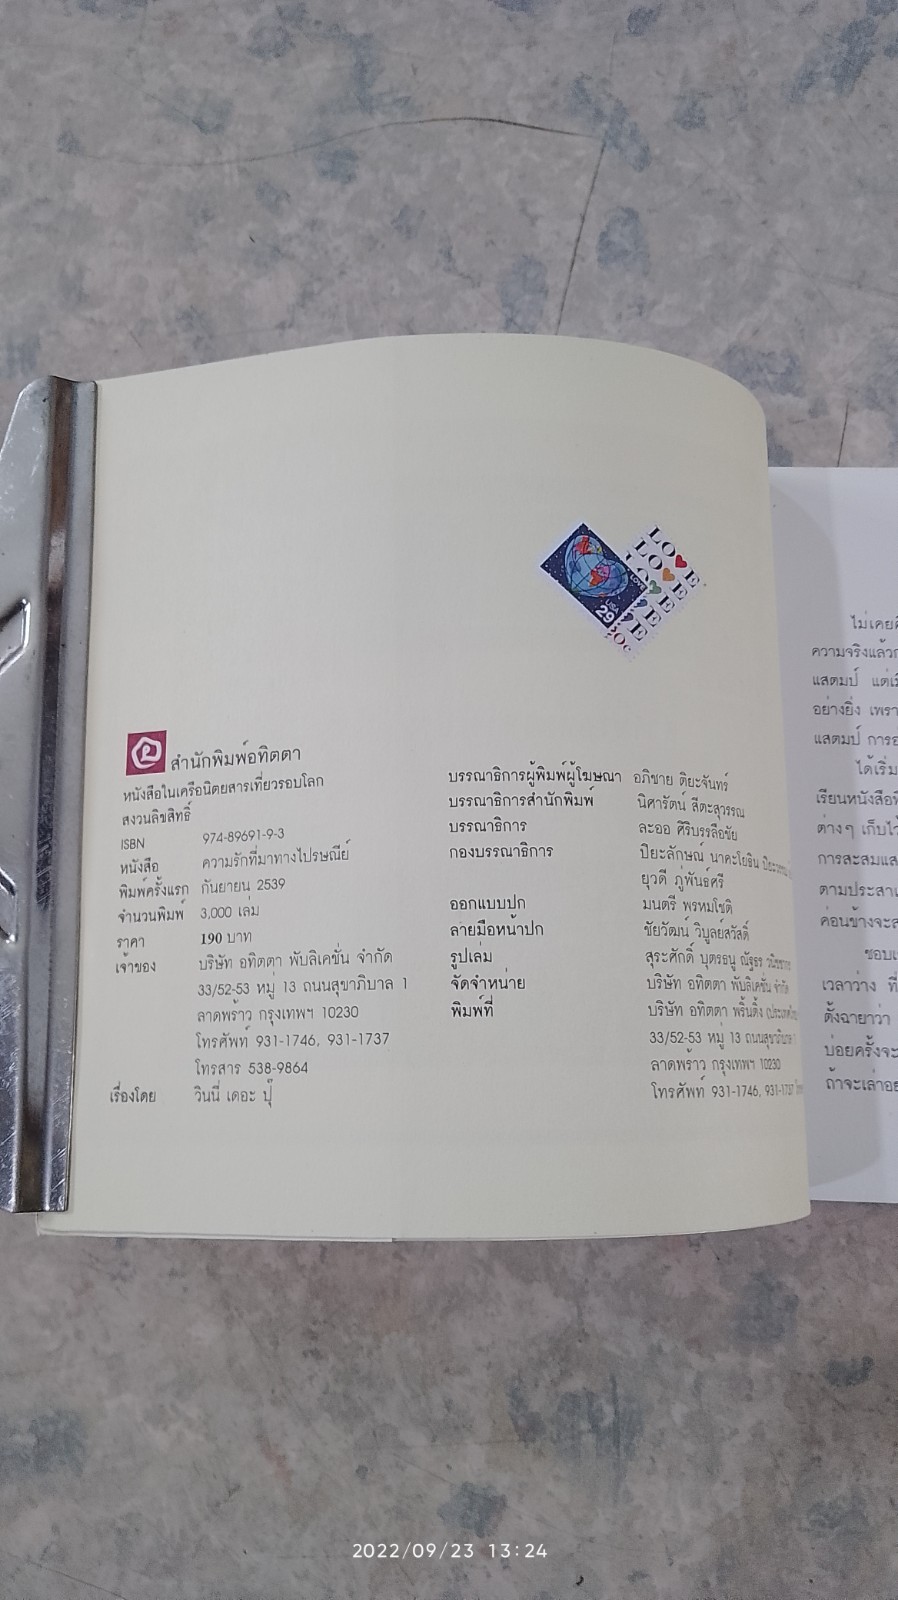 LOVE
LOVE
LOVE
LOVE
USA
29
สำนักพิมพ์อทิตตา
หนังสือในเครือนิตยสารเที่ยวรอบโลก
สงวนลิขสิทธิ์
ISBN 974-89691-9-3
หนังสือ ความรักที่มาทางไปรษณีย์
พิมพ์ครั้งแรก กันยายน 2539
จำนวนพิมพ์ 3,000 เล่ม
ราคา 190 บาท
เจ้าของ บริษัท อทิตตา พับลิเคชั่น จำกัด
33/52-53 หมู่ 13 ถนนสุขาภิบาล 1
ลาดพร้าว กรุงเทพฯ 10230
โทรศัพท์ 931-1746, 931-1737
โทรสาร 538-9864
เรื่องโดย วินนี่ เดอะ ปุ๊
บรรณาธิการผู้พิมพ์ผู้โฆษณา อภิชาย ติยะจันทร์
บรรณาธิการสำนักพิมพ์ นิศารัตน์ สีตะสุวรรณ
บรรณาธิการ ละออ ศิริบรรลือชัย
กองบรรณาธิการ ปิยะลักษณ์ นาคะโยธิน
ยุวดี ภู่พันธ์ศรี
ออกแบบปก มนตรี พรหมโชติ
ลายมือหน้าปก ชัยวัฒน์ วิบูลย์สวัสดิ์
รูปเล่ม สุระศักดิ์ บุตรธนู ณัฐธร
จัดจำหน่าย บริษัท อทิตตา พับลิเคชั่น จำกัด
พิมพ์ที่ บริษัท อทิตตา พริ้นติ้ง
33/52-53 หมู่ 13 ถนนสุขาภิบาล 1
ลาดพร้าว กรุงเทพฯ 10230
โทรศัพท์ 931-1746, 931-1737
ไม่เคย
ความจริงแล้ว
แสตมป์ แต่
อย่างยิ่ง
แสตมป์
ได้เริ่ม
เรียนหนังสือ
ต่างๆ เก็บไว้
การสะสม
ตามประสา
ค่อนข้างจะ
ชอบ
เวลาว่าง ที่
ตั้งฉายาว่า
บ่อยครั้งจะ
ถ้าจะเล่า
2022/09/23 13:24